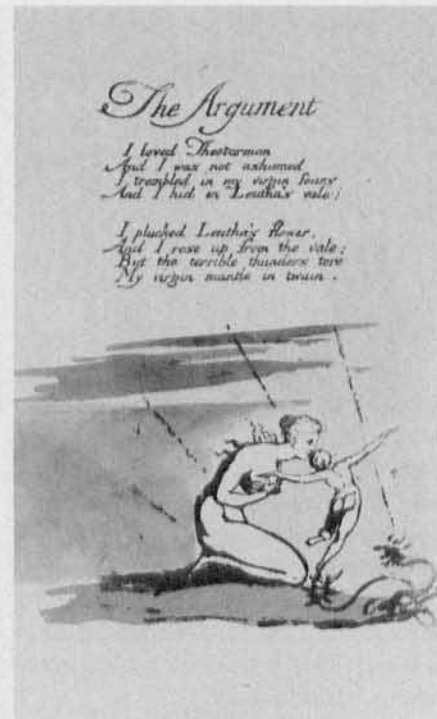 The Argument
I loved Theotormon
And I was not ashamed
I trembled in my virgin fears
And I hid in Leutha's vale!
I plucked Leutha's flower,
And I rose up from the vale;
But the terrible thunders tore
My virgin mantle in twain.